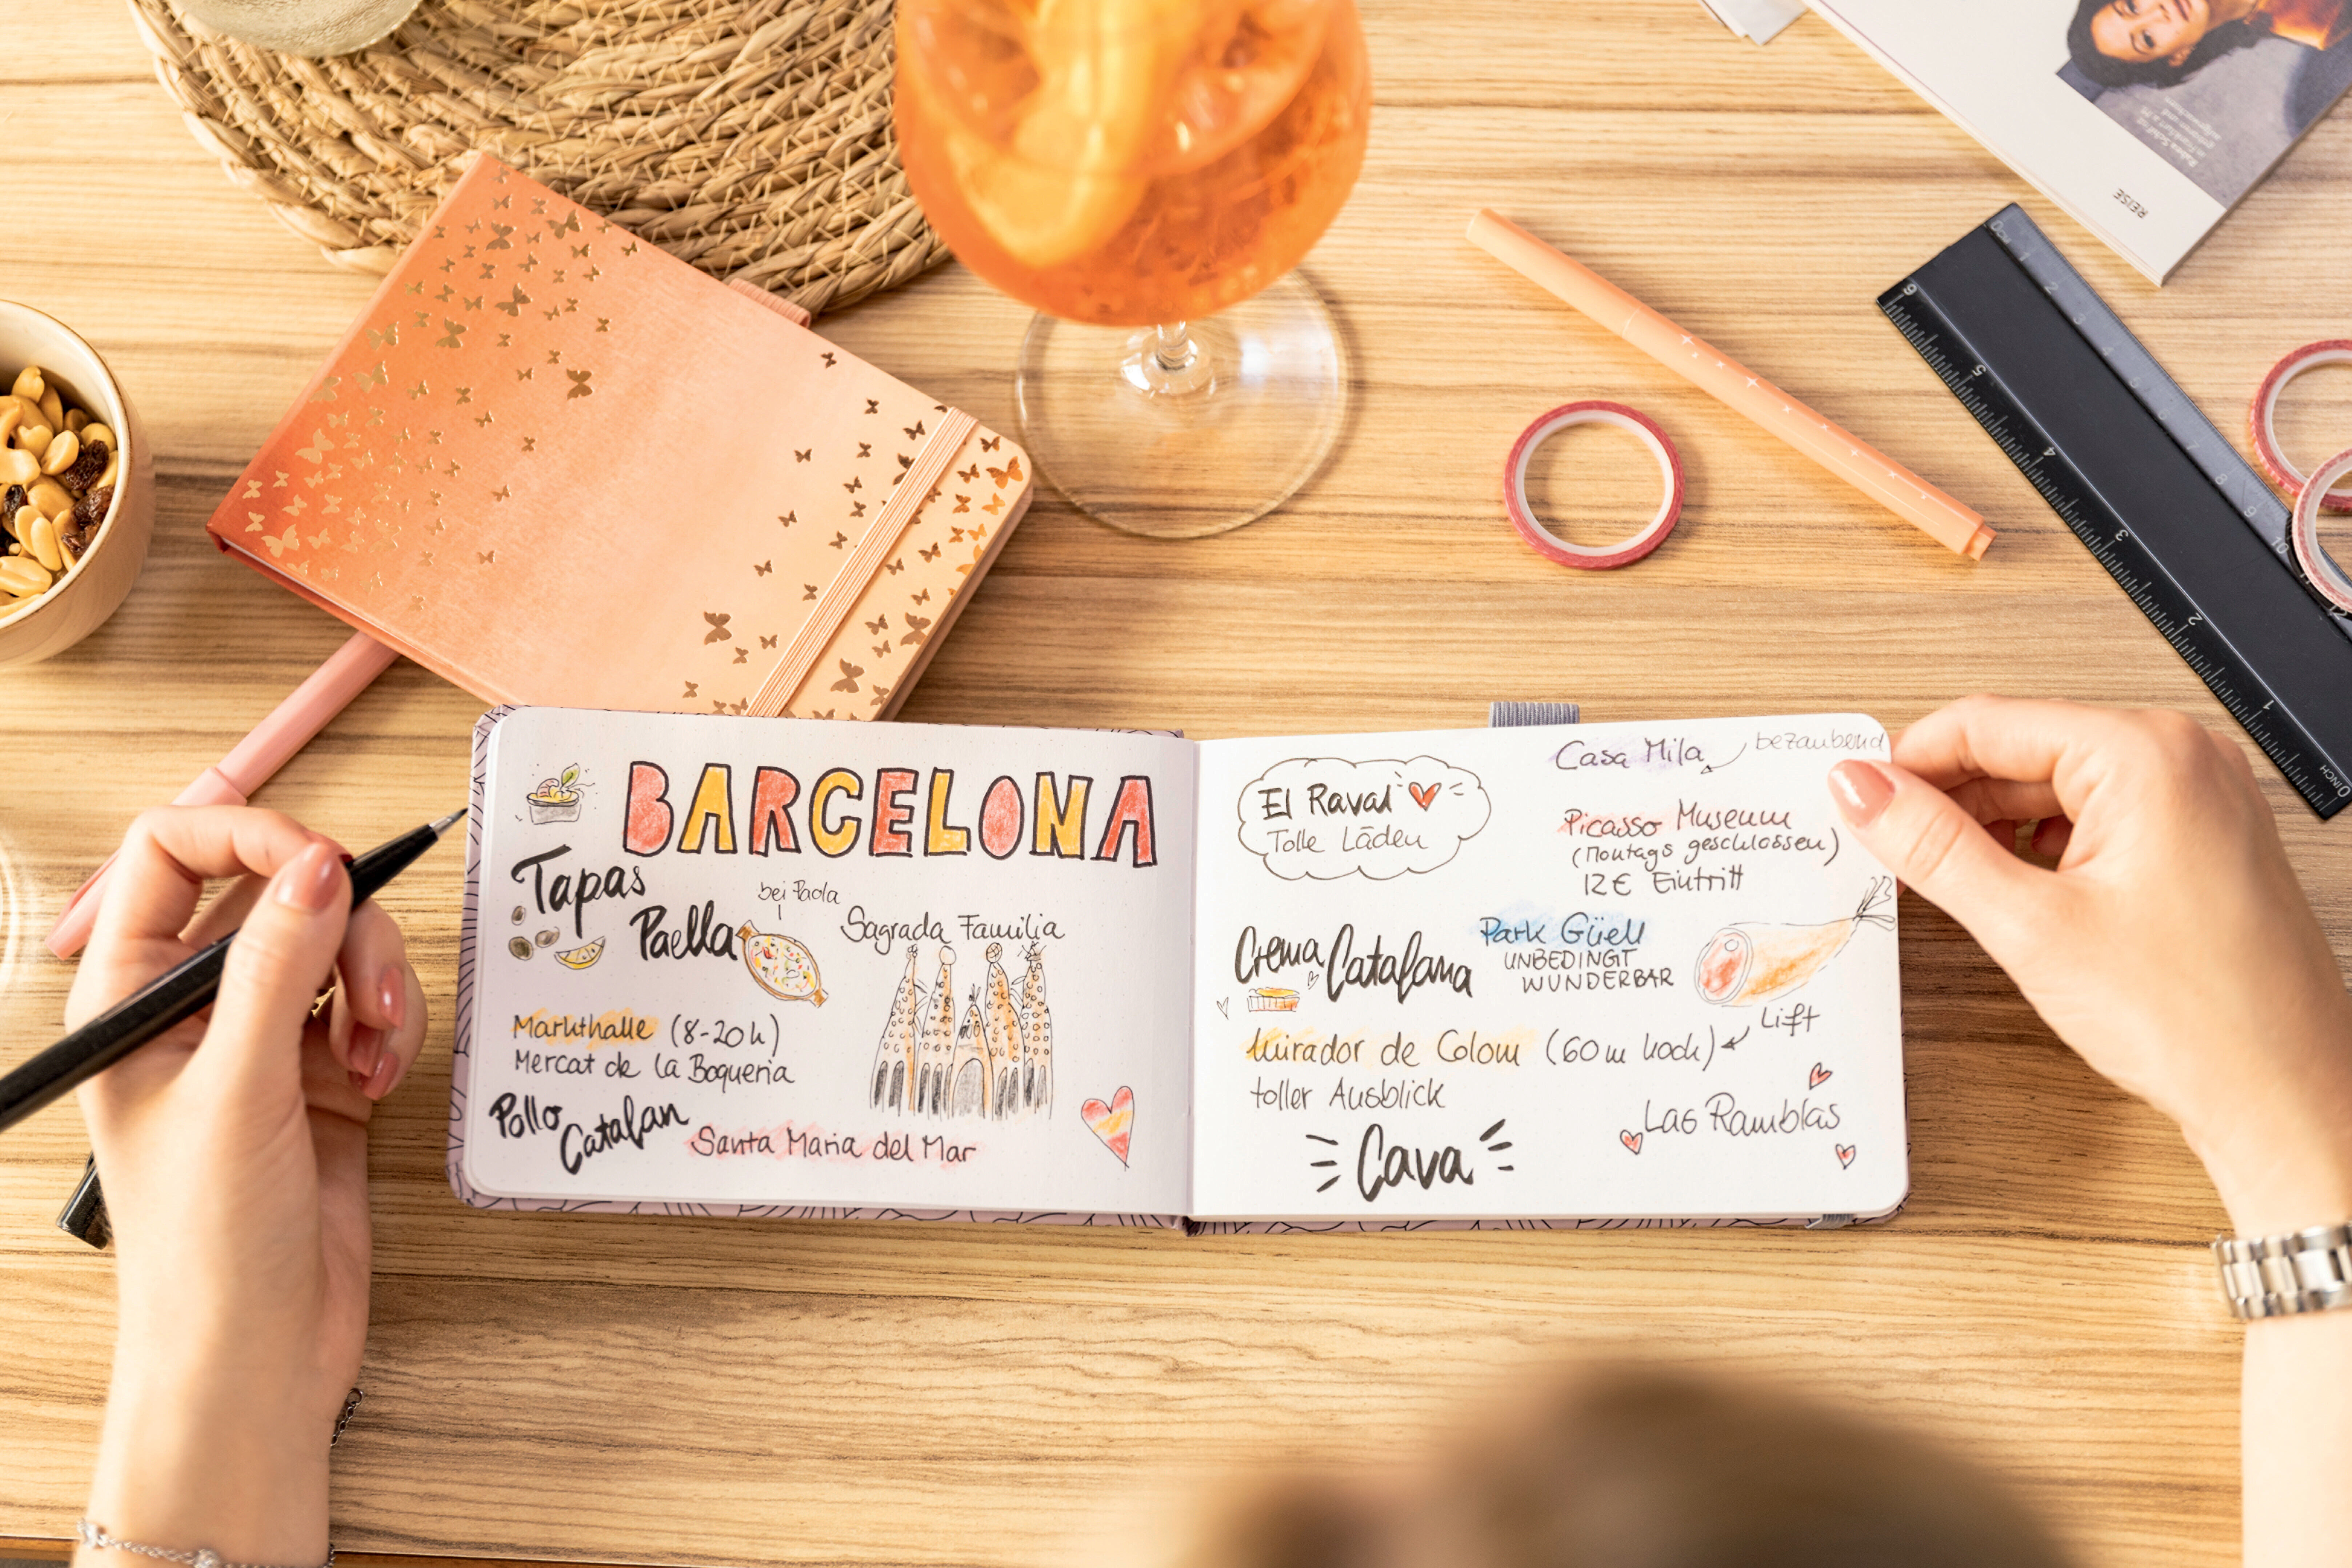 BARCELONA
Tapas
Paella
bei Paola
Sagrada Familia
Markthalle (8-20h)
Mercat de la Boqueria
Pollo
Catalan
Santa Maria del Mar
El Raval
Tolle Läden
Casa Mila
bezaubernd
Picasso Museum
(Montags geschlossen)
12€ Eintritt
Crema
Catalana
Park Güell
UNBEDINGT
WUNDERBAR
Mirador de Colom (60m hoch)
Lift
toller Ausblick
Cava
Las Ramblas
REISE
0CM 1 2 3 4 5 6 7 8 9 10
6 5 4 3 2 1 0INCH